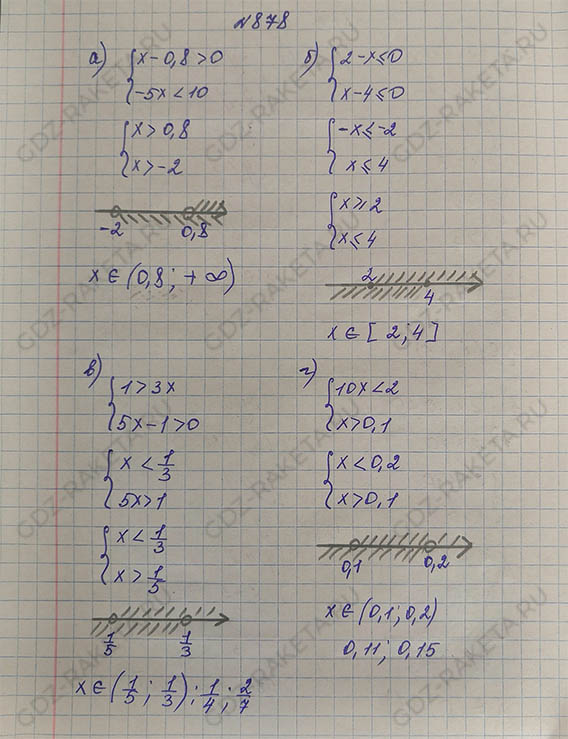 №878
а) { x-0,8>0
-5x<10
{ x>0,8
x>-2
-2 0,8
x∈(0,8; +∞)
б) { 2-x≤0
x-4≤0
{ -x≤-2
x≤4
{ x≥2
x≤4
2 4
x∈[2;4]
в) { 1>3x
5x-1>0
{ x<1/3
5x>1
{ x<1/3
x>1/5
1/5 1/3
x∈(1/5; 1/3): 1/4; 2/7
г) { 10x<2
x>0,1
{ x<0,2
x>0,1
0,1 0,2
x∈(0,1;0,2)
0,11; 0,15
GDZ-RAKETA.RU